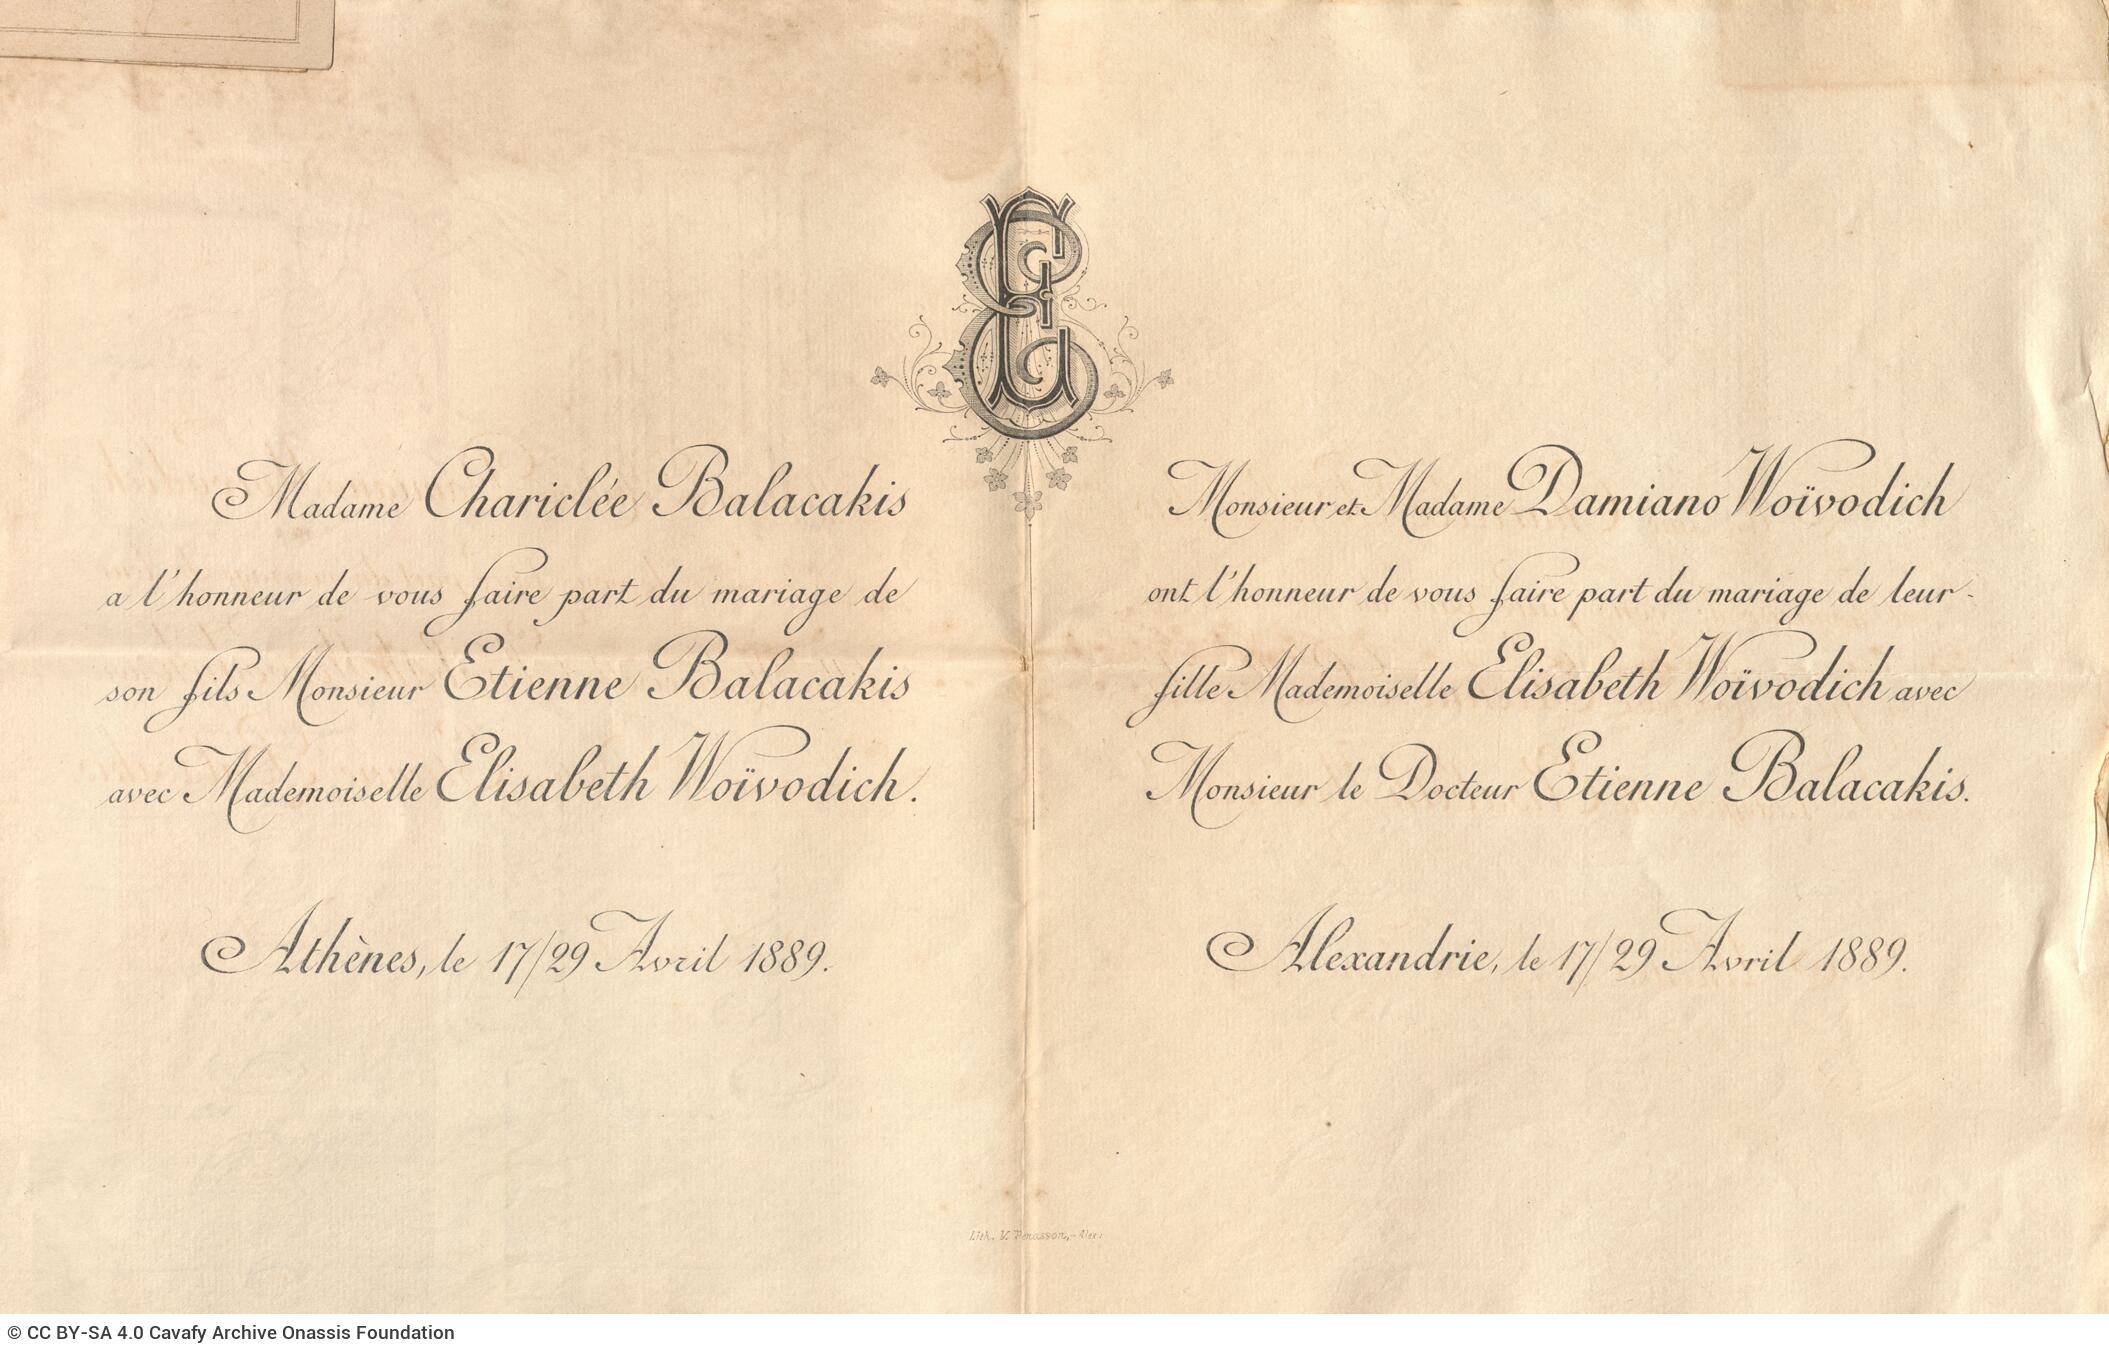 Madame Chariclée Balacakis
a l'honneur de vous faire part du mariage de
son fils Monsieur Etienne Balacakis
avec Mademoiselle Elisabeth Woïvodich.
Athènes, le 17/29 Avril 1889.
Monsieur et Madame Damiano Woïvodich
ont l'honneur de vous faire part du mariage de leur
fille Mademoiselle Elisabeth Woïvodich avec
Monsieur le Docteur Etienne Balacakis.
Alexandrie, le 17/29 Avril 1889.
Lith. V. Penasson,-Alex.
© CC BY-SA 4.0 Cavafy Archive Onassis Foundation